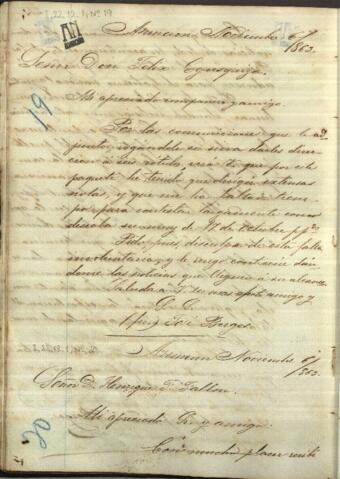 I, 22, 12, 1, Nº 19
Asuncion Noviembre 6/
1863.
Señor Don Felix Egusquiza.
19
Mi apreciado compadre y amigo.
Por las comunicaciones que le ad-
junto, rogándole se sirva darles direc-
cion á sus rótulos, verá V. que por este
paquete he tenido que dirigir extensas
notas, y que me ha faltado tiem-
po para contestar largamente como
deseaba su de 17 de Octubre pp.do
Pido, pues, disculpa de esta falta
involuntaria, y le ruego continúe dan-
dome las noticias que lleguen á su alcance.
Saluda á V. su mas apdo amigo y
José Berges.
Asuncion Noviembre 6/
1863.
Señor D. Henrique F. Fallon.
20
Mi apreciado Sr. y amigo.
Con mucho placer recibí